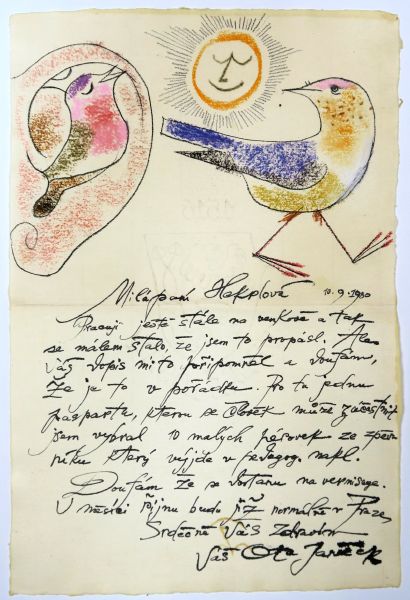 Milá paní Hakplová 10.9.1980
Pracuji ještě stále na venkově a tak
se málem stalo, že jsem to propásl. Ale
Váš dopis mi to připomněl a doufám,
že je to v pořádku. Pro tu jednu
paspartu, kterou se člověk může zúčastnit
jsem vybral 10 malých pérovek ze zpěv
níku který vyjde v pedagog. nakl.
Doufám že se dostanu na vernisage.
V měsíci říjnu budu již normálně v Praze.
Srdečně Vás zdravím
Váš Ota Janeček